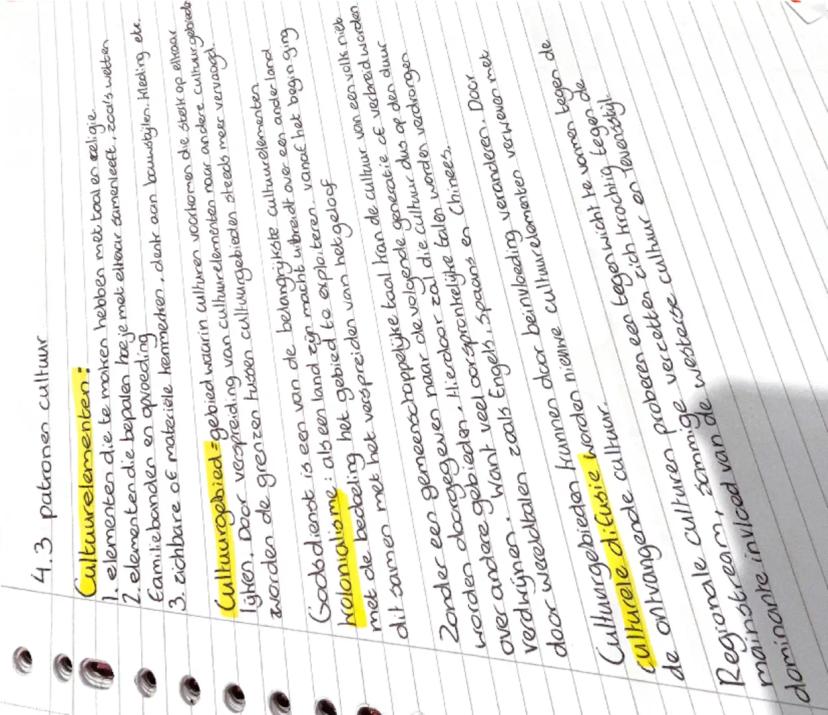 4.3 patronen cultuur
Cultuurelementen:
1. elementen die te maken hebben met taal en religie
2. elementen die bepalen hoe je met elkaar samenleeft, zoals wetten
familiebanden en opvoeding
3. zichbare of materiële kenmerken, denk aan bouwstijlen, kleding etc.
Cultuurgebied = gebied waarin culturen voorkomen die sterk op elkaar
lijken. Door verspreiding van cultuurelementen naar andere cultuurgebieden
worden de grenzen tussen cultuurgebieden steeds meer vervaagd.
Godsdienst is een van de belangrijkste cultuurelementen
kolonialisme: als een land zijn macht uitbreidt over een ander land
met de bedoeling het gebied te exploiteren. vanaf het begin ging
dit samen met het verspreiden van het geloof
Zonder een gemeenschappelijke taal kan de cultuur van een volk niet
worden doorgegeven naar de volgende generatie of verbreid worden
over andere gebieden. Hierdoor zal die cultuur dus op den duur
verdwijnen. Want veel oorspronkelijke talen worden verdrongen
door wereldtalen zoals Engels, Spaans en Chinees.
Cultuurgebieden kunnen door beïnvloeding veranderen. Door
culturele difusie worden nieuwe cultuurelementen verweven met
de ontvangende cultuur.
Regionale culturen proberen een tegenwicht te vormen tegen de
mainstream, sommige verzetten zich krachtig tegen de
dominante invloed van de westerse cultuur en levensstijl.